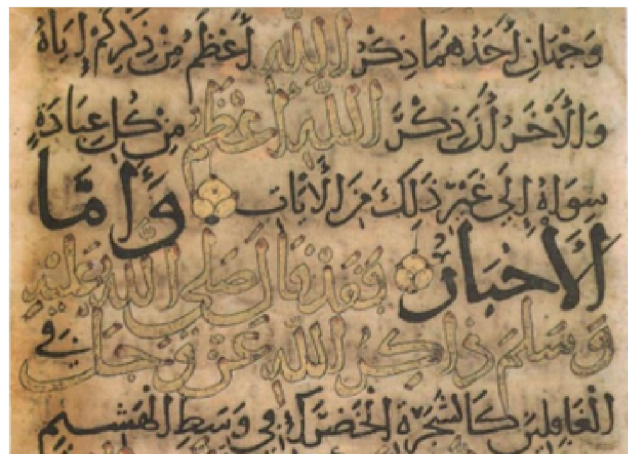 وَجْهَانِ أَحَدُهُمَا ذِكْرُ اللَّهِ أَعْظَمُ مِنْ ذِكْرِكُمْ إِيَّاهُ
وَالْأَخَرُ أَنَّ ذِكْرَ اللَّهِ أَعْظَمُ مِنْ كُلِّ عِبَادَةٍ
سِوَاهُ إِلَى غَيْرِ ذَلِكَ مِنَ الْأَيَاتِ وَأَمَّا
الْأَخْبَارُ فَقَدْ قَالَ صَلَّى اللَّهُ عَلَيْهِ
وَسَلَّمَ ذَاكِرُ اللَّهِ عَزَّ وَجَلَّ فِي
الْغَافِلِينَ كَالشَّجَرَةِ الْخَضْرَاءِ فِي وَسَطِ الْهَشِيمِ